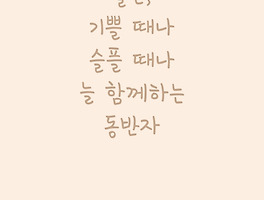 기쁠 때나
슬플 때나
늘 함께하는
동반자